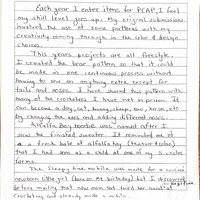 Each year I enter items for PCAP, I feel
my skill level goes up. My original submissions
involved the use of some patterns with my
creativity coming through in the color & design
choices.
This years projects are all freestyle.
I created the bear pattern so that it could
be made in one continuous process without
having to sew on anything extra except for
tails and noses. I have shared this pattern with
many of the crocheters I have met in prison. It
can become a dog, cat, bunny, sheep, cow, horse, etc
by changing the ears and adding different noses.
Alfalfa Baby hoodie was named after I
saw the finished sweater. It reminded me of
a fresh bale of alfalfa hay (texture & color)
that I had seen as a child at one of my S
farms.
The Sleepy time mobile was made for a
newborn little girl (born on my birthday) but I discovered
before mailing that new mom had tried her hand at
crocheting and already made a mobile.